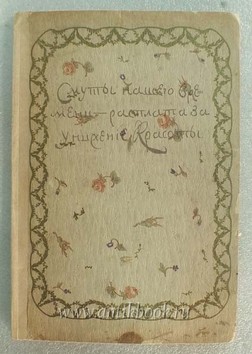 Смуты нашего вре-
мени — расплата за
Унижение Красоты.
www.antikbook.ru